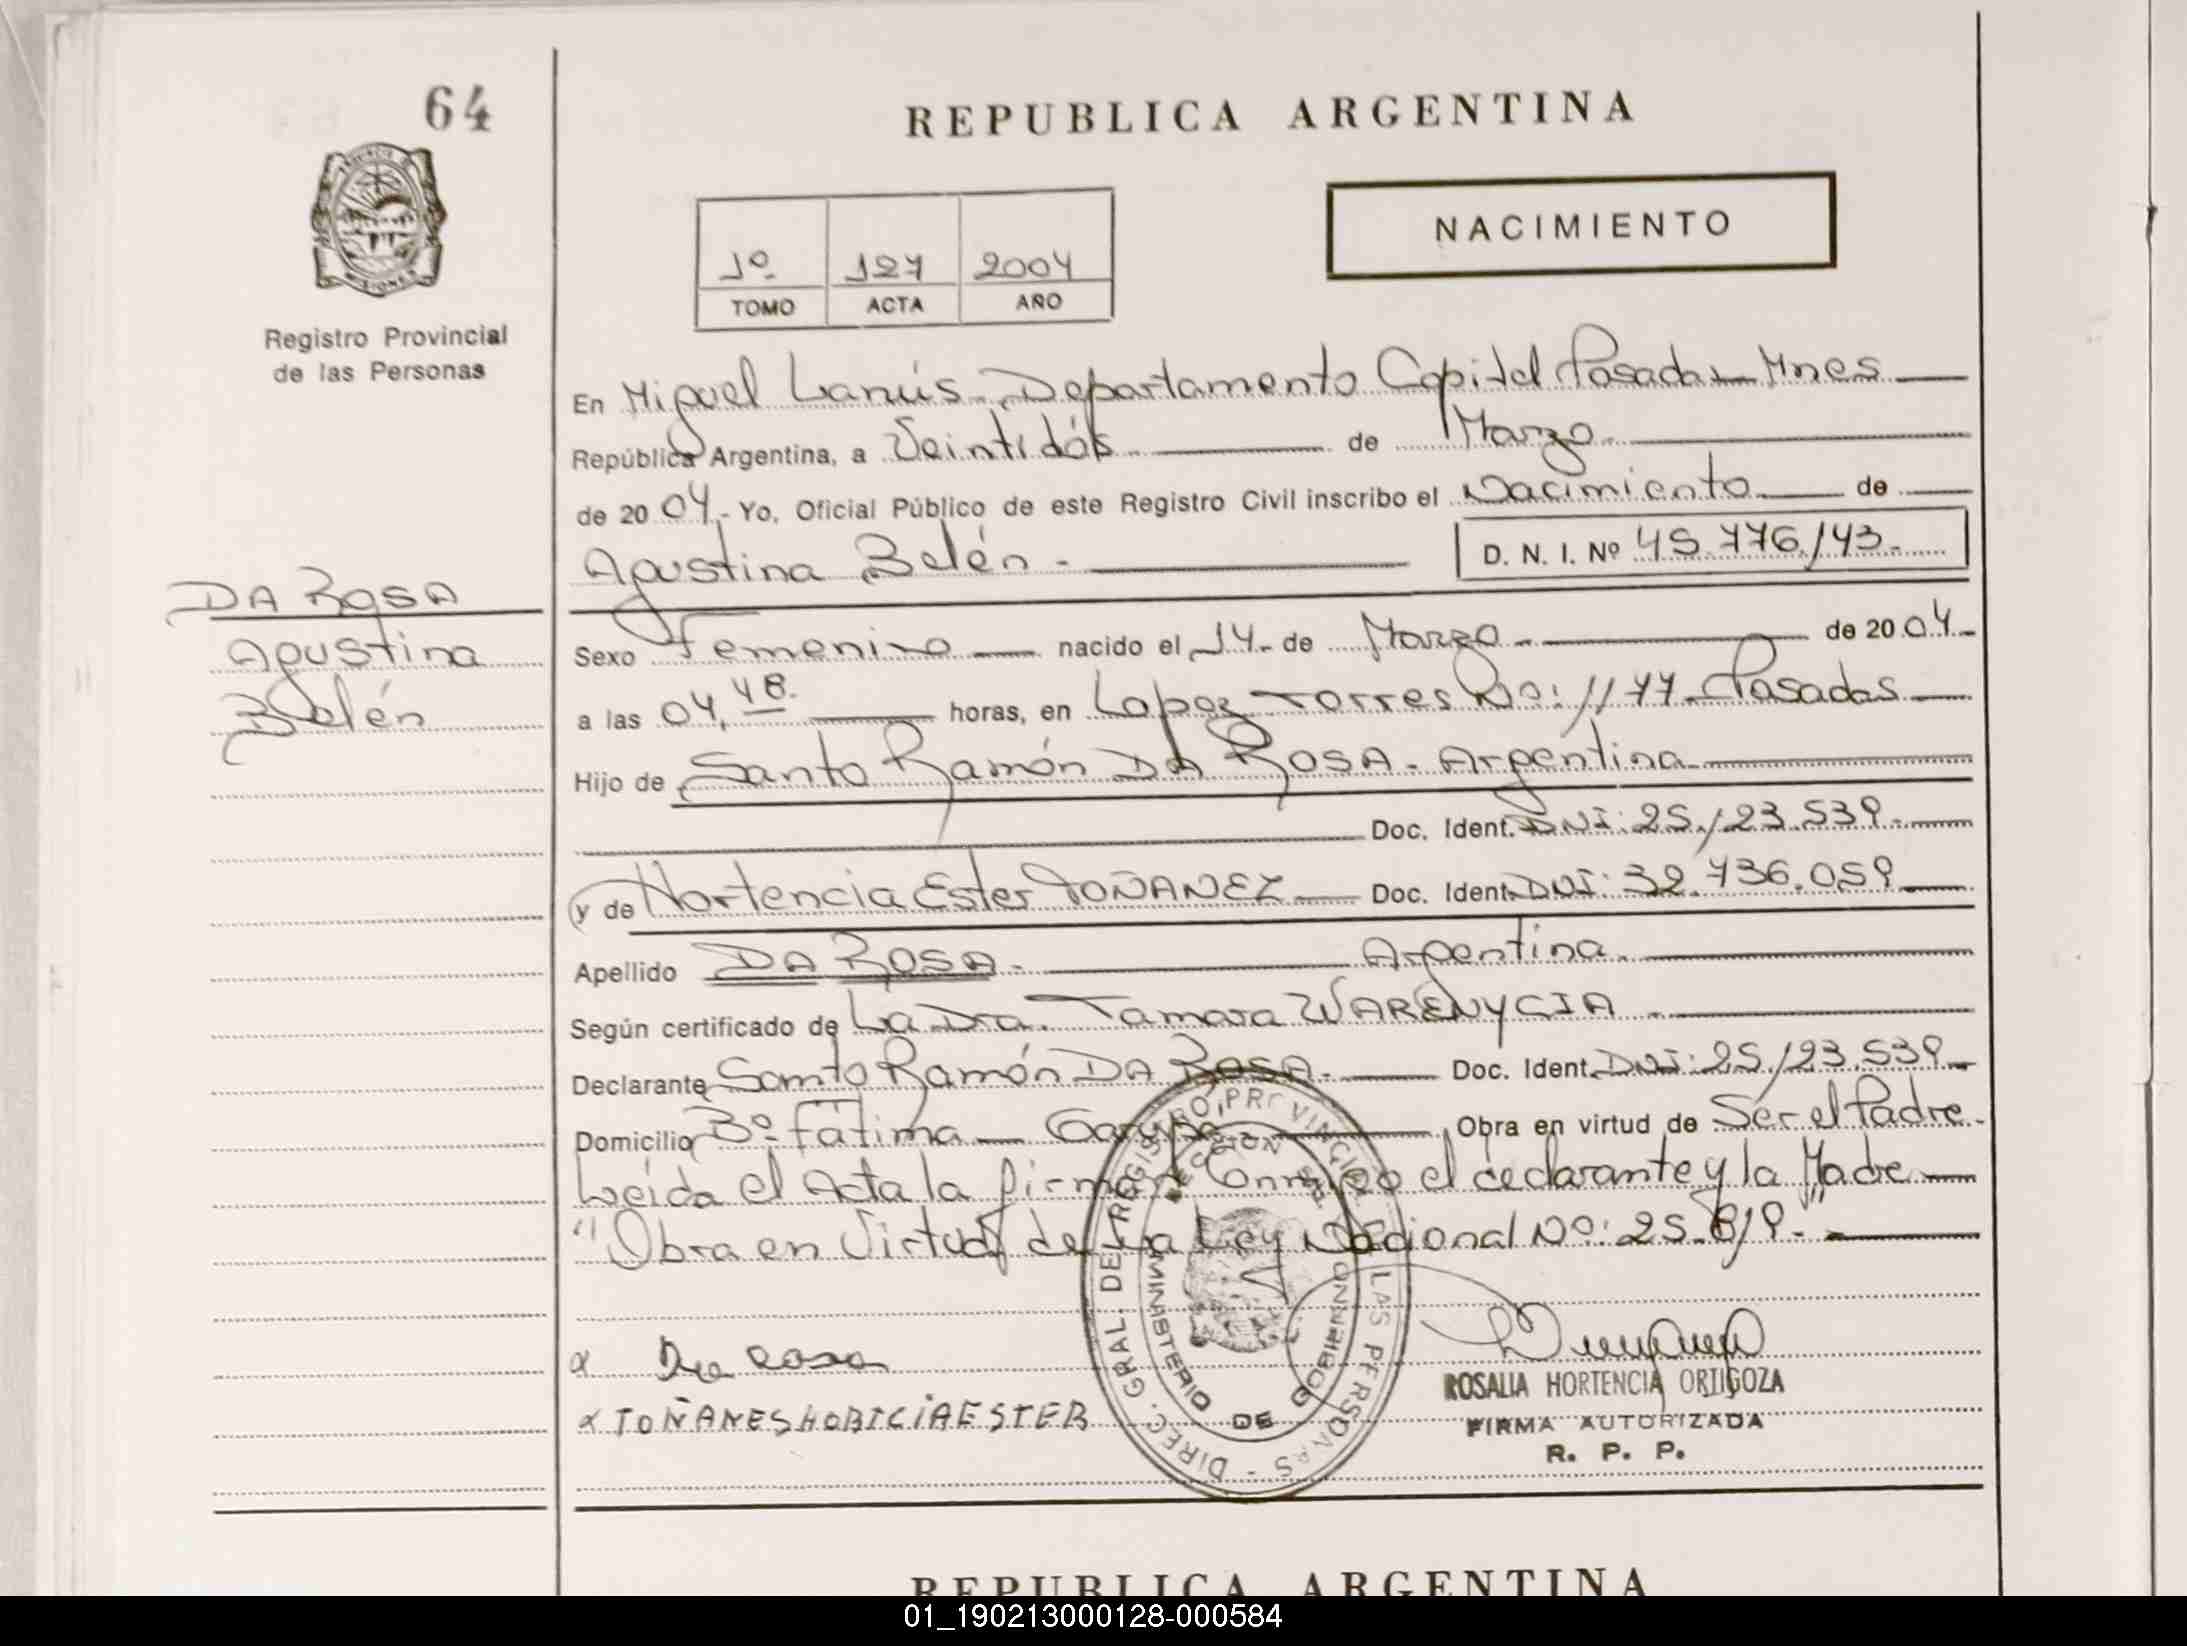 64
REPUBLICA ARGENTINA
NACIMIENTO
1º 127 2004
TOMO ACTA AÑO
Registro Provincial
de las Personas
En Miguel Lanús - Departamento Capital Posadas Mnes
República Argentina, a Veintidós de Marzo
de 2004.- Yo, Oficial Público de este Registro Civil inscribo el Nacimiento de
Agustina Belén - D. N. I. Nº 45.776.143.-
DA ROSA
Agustina
Belén
Sexo Femenino nacido el 14. de Marzo - de 2004.-
a las 04,48. horas, en Lopez Torres Nº: 1177 - Posadas
Hijo de Santo Ramón DA ROSA - Argentina
Doc. Ident. DNI: 25.123.539.-
y de Hortencia Ester TOÑANEZ Doc. Ident. DNI: 32.736.059
Apellido DA ROSA - Argentina.
Según certificado de La Dra. Tamara WARENYCIA
Declarante Santo Ramón DA ROSA - Doc. Ident. DNI: 25.123.539.-
Domicilio Bº Fátima - Garupá Obra en virtud de Ser el Padre.
Leida el Acta la firman Conmigo el declarante y la Madre
"Obra en Virtud de la Ley Nacional Nº: 25.819.-"
DIREC. GRAL. DEL REGISTRO PROVINCIAL DE LAS PERSONAS -
MINISTERIO DE GOBIERNO
x Da Rosa
x TOÑANES HOBICIA ESTER
ROSALIA HORTENCIA ORTIGOZA
FIRMA AUTORIZADA
R. P. P.
REPUBLICA ARGENTINA
01_190213000128-000584